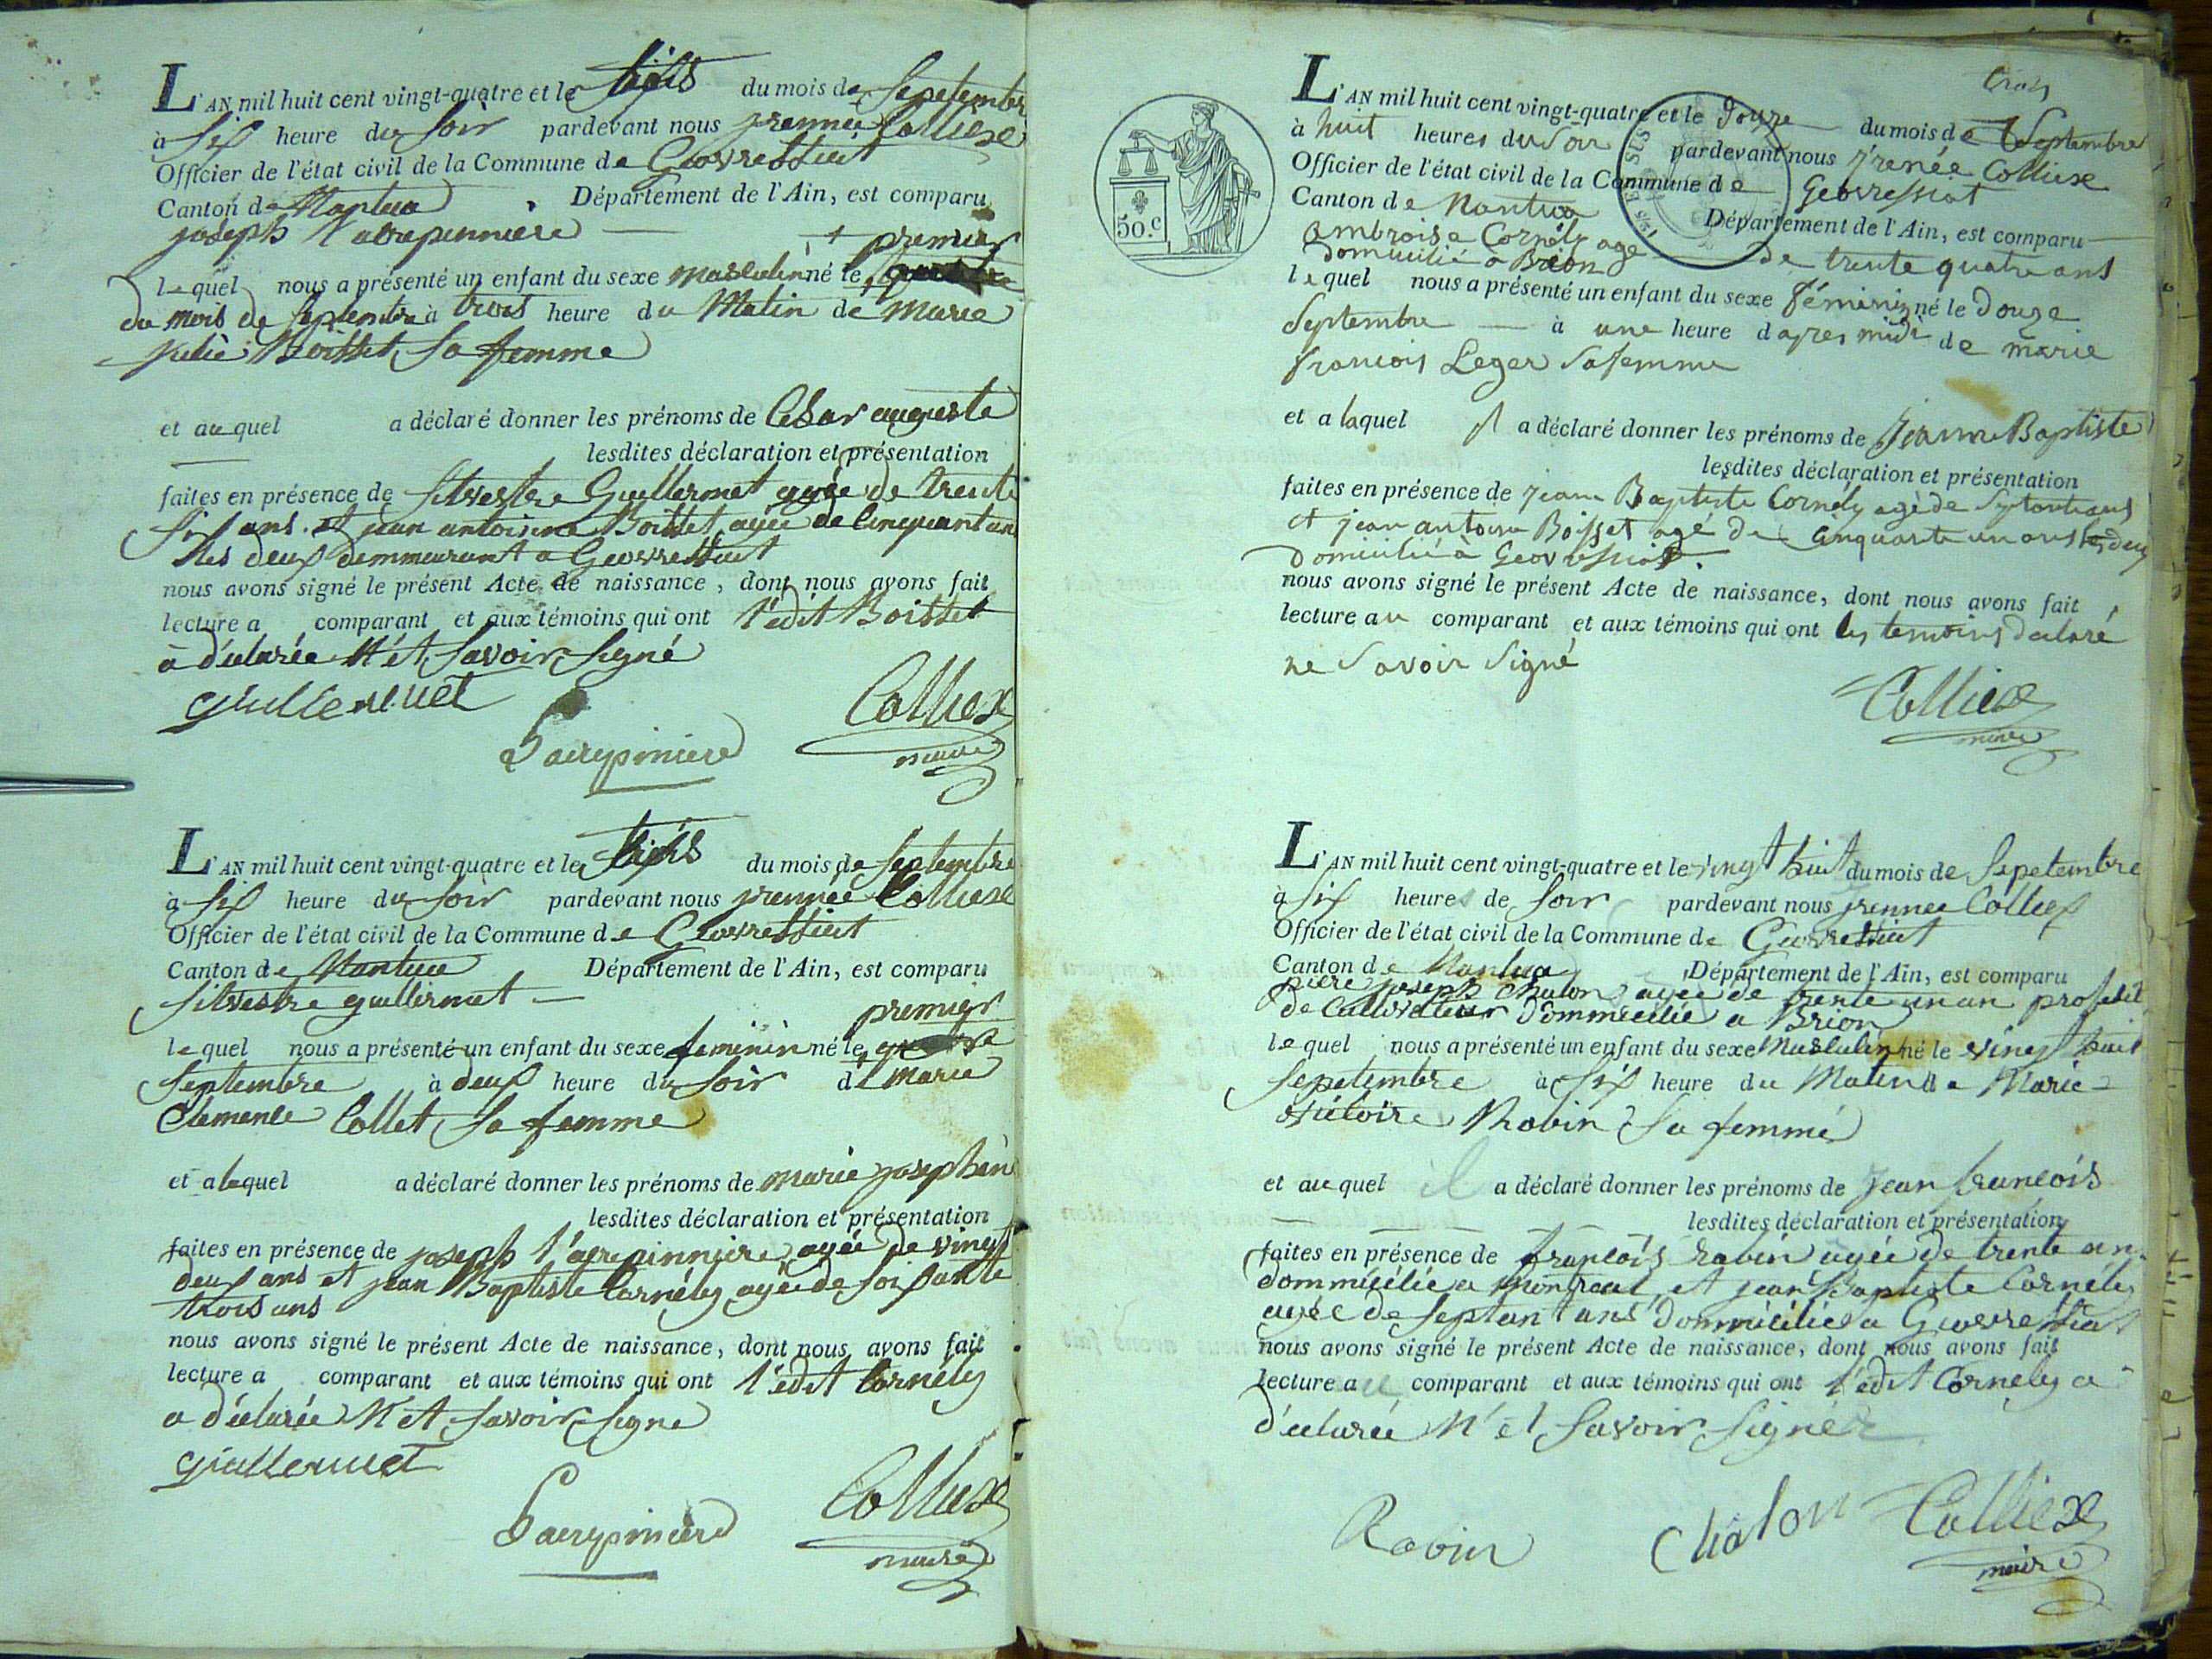 L'AN mil huit cent vingt-quatre et le trois du mois de Sepetembre
à six heure du soir pardevant nous Jrennée Colliex
Officier de l'état civil de la Commune de Geovressiat
Canton de Nantua Département de l'Ain, est comparu
joseph
premier
le quel nous a présenté un enfant du sexe masculin né le
du mois de septembre à trois heure du Matin de Marie
julie Boisset sa femme
et au quel a déclaré donner les prénoms de César auguste
lesdites déclaration et présentation
faites en présence de silvestre Guillermet agée de trente
six ans et jean antoinne Boisset agée de cinquant un
les deux demmeurant a Geovressiat
nous avons signé le présent Acte de naissance, dont nous avons fait
lecture a comparant et aux témoins qui ont l'édit Boisset
a déclarée n'et savoir signé
Guillermet
Colliex
maire
L'AN mil huit cent vingt-quatre et le trois du mois de septembre
à six heure du soir pardevant nous jrennée Colliex
Officier de l'état civil de la Commune de Geovressiat
Canton de Nantua Département de l'Ain, est comparu
silvestre guillermet
premier
le quel nous a présenté un enfant du sexe feminin né le
septembre à deux heure du soir de marie
Clemence Collet sa femme
et a laquel a déclaré donner les prénoms de marie josephin
lesdites déclaration et présentation
faites en présence de joseph agée de vingt
deux ans et jean Baptiste Cornély agée de soixante
trois ans
nous avons signé le présent Acte de naissance, dont nous avons fait
lecture a comparant et aux témoins qui ont l'édit Cornély
a déclarée n'et savoir signe
Guillermet
Colliex
maire
trois
50.c
L'AN mil huit cent vingt-quatre et le Douze du mois de Septembre
à huit heures du Soir pardevant nous jrenée Colliex
Officier de l'état civil de la Commune de Geovressiat
Canton de Nantua Département de l'Ain, est comparu
Ambroise Cornély agé de trente quatre ans
Domicilié a Brion
le quel nous a présenté un enfant du sexe féminin né le Douze
Septembre à une heure d apres midi de marie
francois Leger Safemme
et a laquel il a déclaré donner les prénoms de Jeanne Baptiste
lesdites déclaration et présentation
faites en présence de jean Baptiste Cornély agé de Septante ans
et jean antoine Boisset agé de Cinquante un ans les deux
Domicilié à Geovressiat
nous avons signé le présent Acte de naissance, dont nous avons fait
lecture au comparant et aux témoins qui ont les temoins declaré
ne Savoir Signé
Colliex
maire
L'AN mil huit cent vingt-quatre et le vingt huit du mois de Sepetembre
à six heures de soir pardevant nous jrennee Colliex
Officier de l'état civil de la Commune de Geovressiat
Canton de Nantua Département de l'Ain, est comparu
piere joseph Chalon agée de trente un an
de Cultivateur Dommicilié a Brion
le quel nous a présenté un enfant du sexe Musculin né le vingt huit
Sepetembre à six heure du Matin de Marie
victoire Robin sa femme
et au quel il a déclaré donner les prénoms de Jean francois
lesdites déclaration et présentation
faites en présence de françois robin agée de trente an
dommicilié a Montreal et jean Baptiste Cornély
agée de septant ans dommicilié a Geovressiat
nous avons signé le présent Acte de naissance, dont nous avons fait
lecture au comparant et aux témoins qui ont l'édit Cornély a
déclarée n'et savoir signér
Robin
Chalon
Colliex
maire